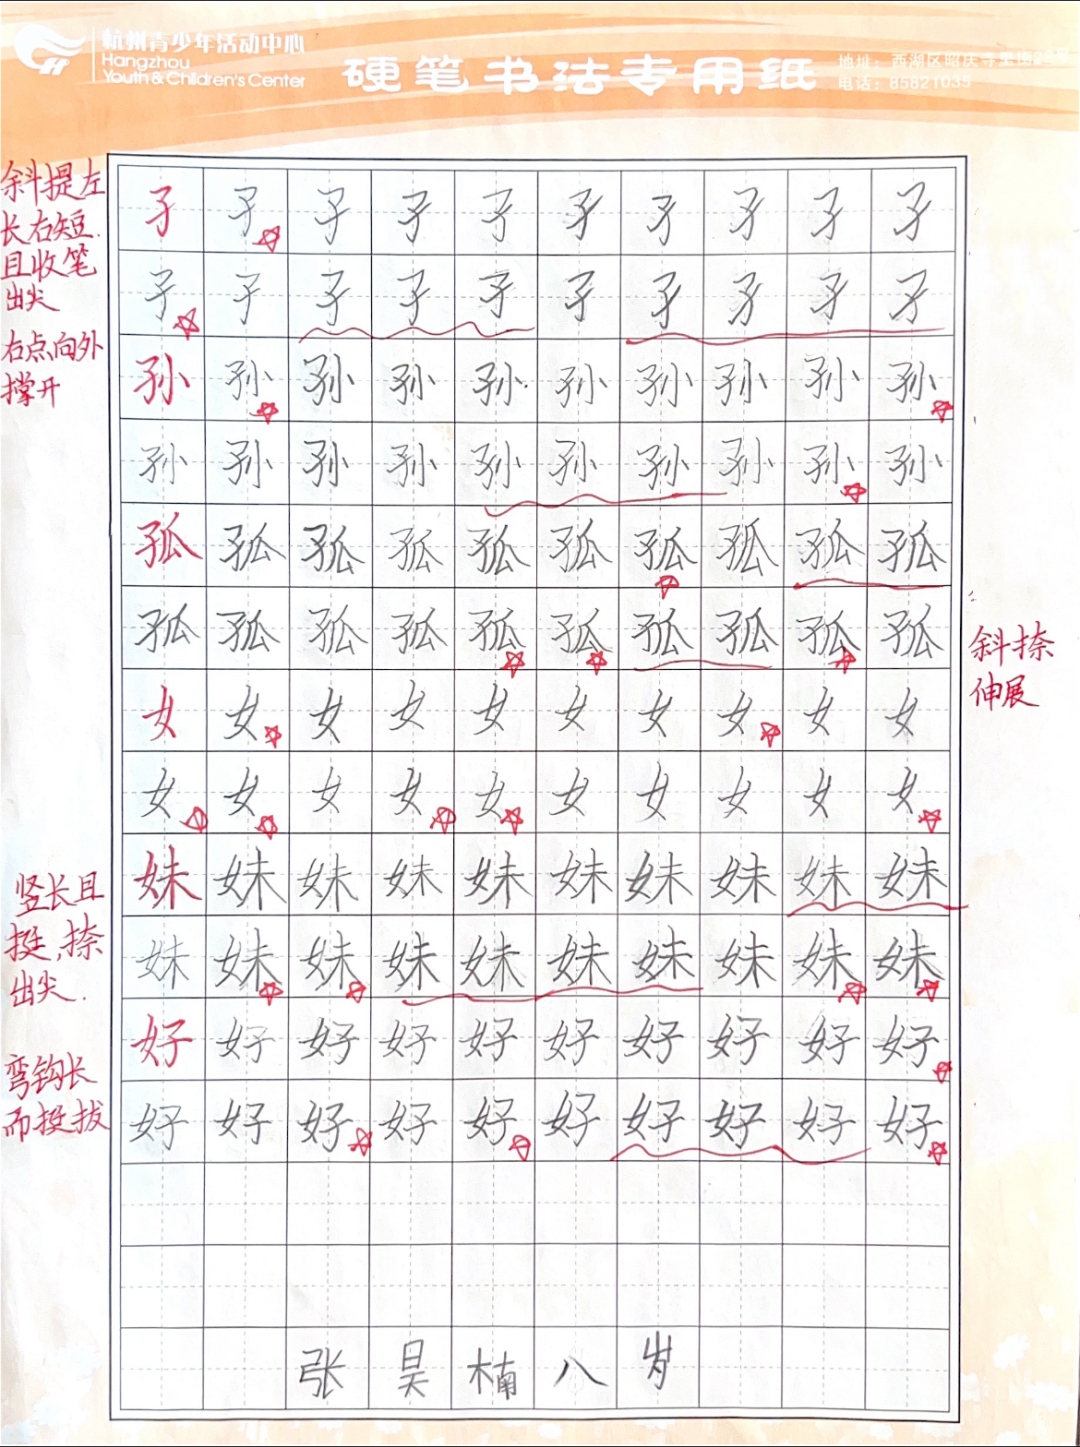 杭州青少年活动中心
Hangzhou
Youth & Children's Center
硬笔书法专用纸
电话：85821035
斜提左
长右短.
且收笔
出尖
右点向外
撑开
孑孑孑孑孑孑孑孑孑孑
孑孑孑孑孑孑孑孑孑孑
孙孙孙孙孙孙孙孙孙孙
孙孙孙孙孙孙孙孙孙孙
孤孤孤孤孤孤孤孤孤孤
孤孤孤孤孤孤孤孤孤孤
斜捺
伸展
女女女女女女女女女女
女女女女女女女女女女
竖长且
挺,捺
出尖.
妹妹妹妹妹妹妹妹妹妹
妹妹妹妹妹妹妹妹妹妹
弯钩长
而挺拔
好好好好好好好好好好
好好好好好好好好好好
张昊楠八岁